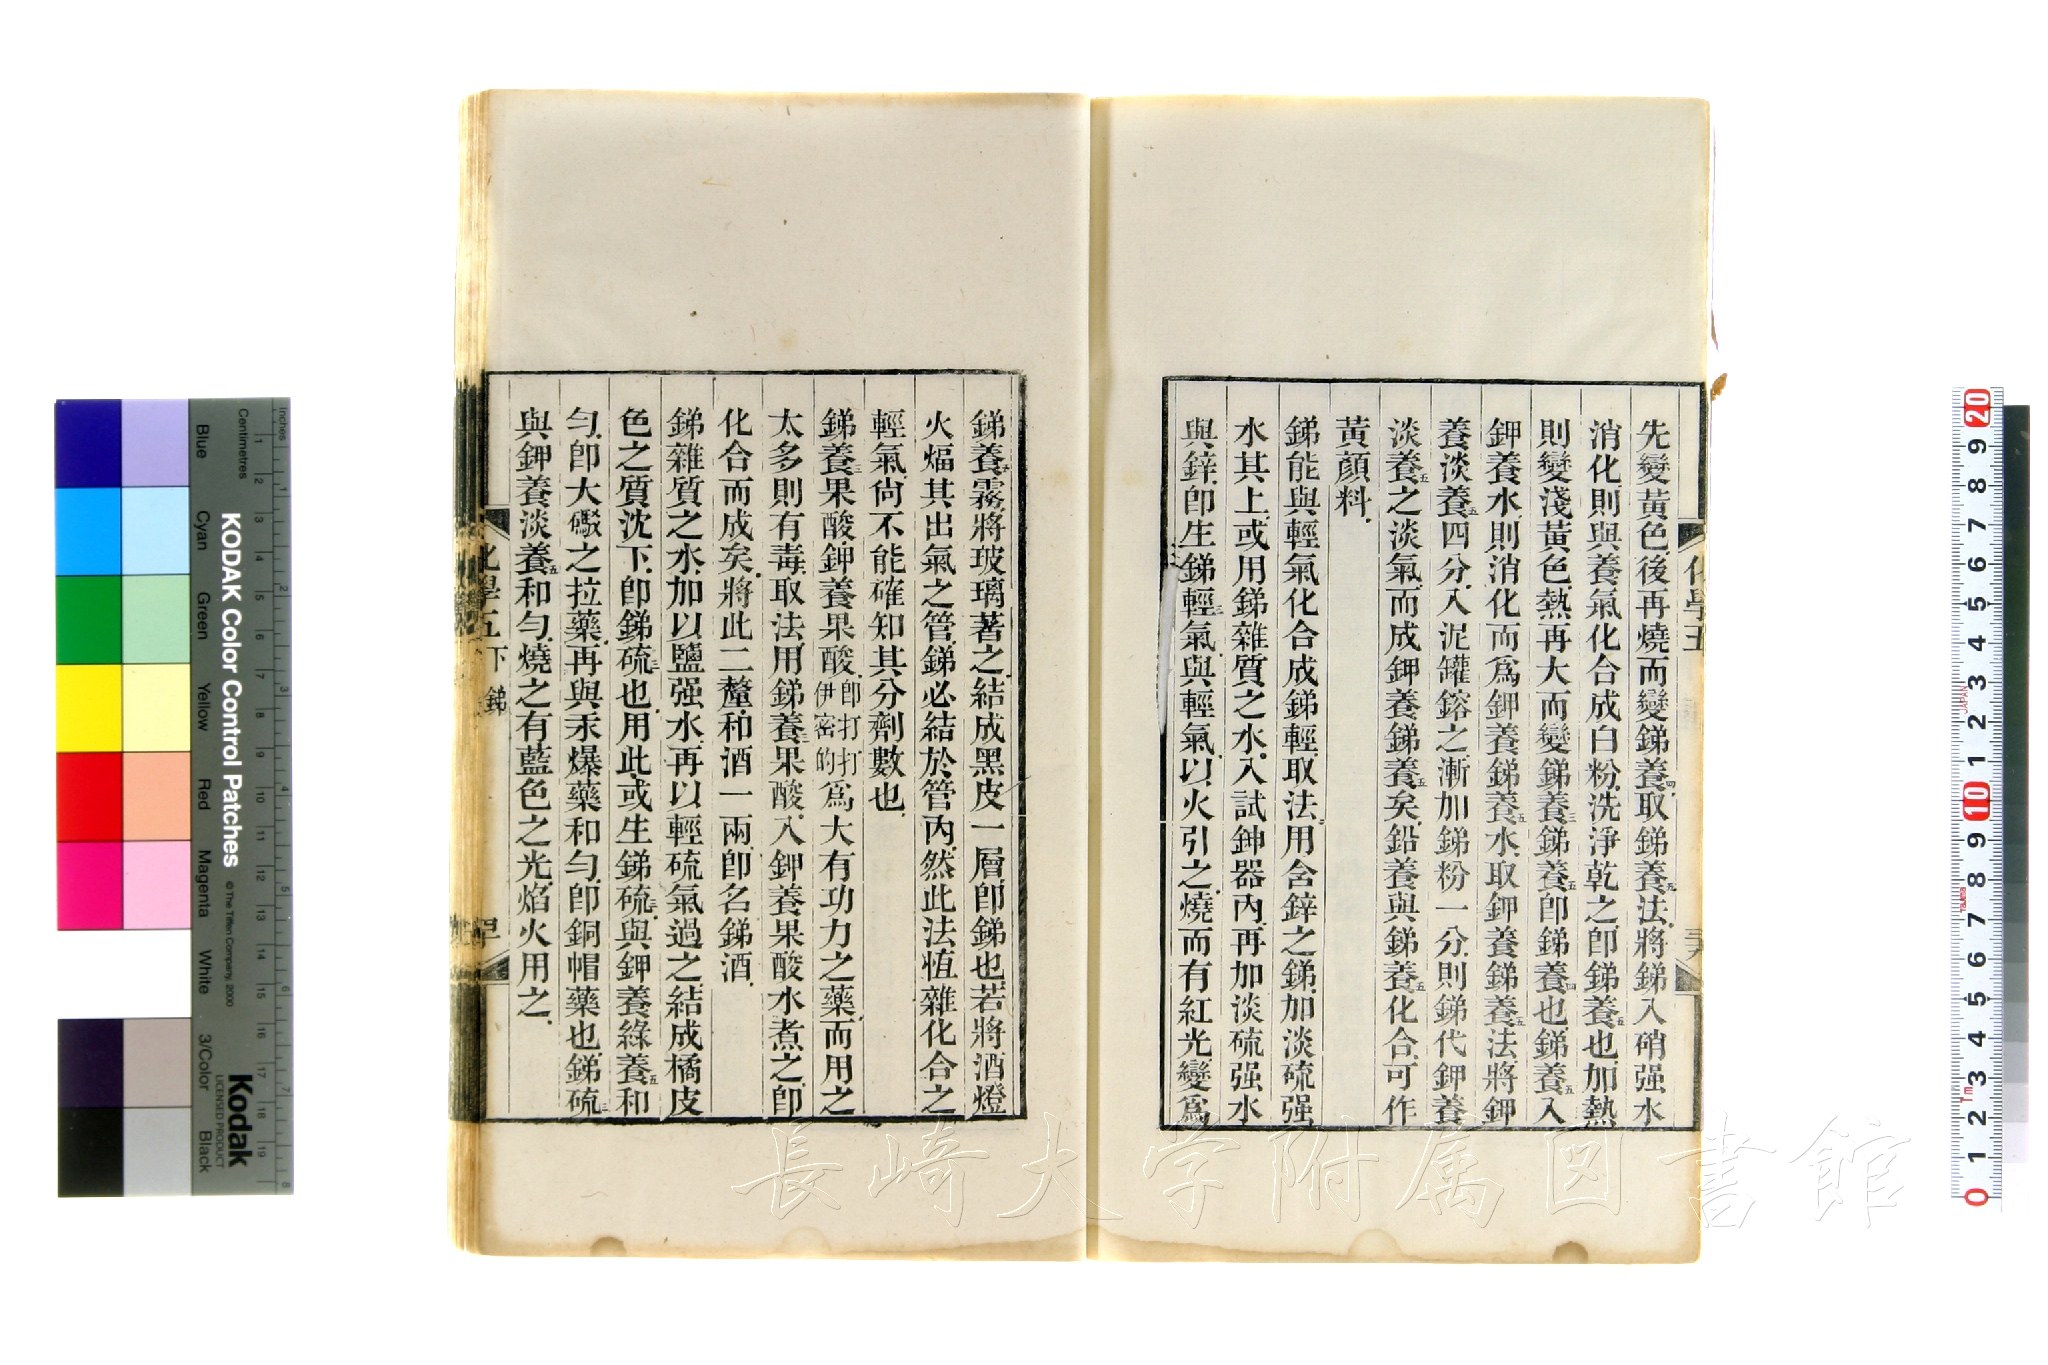 先變黃色後再燒而變銻養四取銻養五法將銻入硝强水
消化則與養氣化合成白粉洗淨乾之卽銻養五也加熱
則變淺黃色熱再大而變銻養三銻養五卽銻養四也銻養五入
鉀養水則消化而爲鉀養銻養五水取鉀養銻養五法將鉀
養淡養五四分入泥罐鎔之漸加銻粉一分則銻代鉀養
淡養五之淡氣而成鉀養銻養五矣鉛養與銻養五化合可作
黃顏料
銻能與輕氣化合成銻輕三取法用含鋅之銻加淡硫强
水其上或用銻雜質之水入試鉮器內再加淡硫强水
與鋅卽生銻輕三氣與輕氣以火引之燒而有紅光變爲
化學五
銻養三霧將玻璃著之結成黑皮一層卽銻也若將酒燈
火煏其出氣之管銻必結於管內然此法恆雜化合之
輕氣尙不能確知其分劑數也
銻養三果酸鉀養果酸卽打打伊密的爲大有功力之藥而用之
太多則有毒取法用銻養三果酸入鉀養果酸水煮之卽
化合而成矣將此二釐和酒一兩卽名銻酒
銻雜質之水加以鹽强水再以輕硫氣過之結成橘皮
色之質沈下卽銻硫三也用此或生銻硫三與鉀養綠養五和
勻卽大礮之拉藥再與汞爆藥和勻卽銅帽藥也銻硫三
與鉀養淡養五和勻燒之有藍色之光焰火用之
化學五 下 銻
長崎大学附属図書館
KODAK Color Control Patches
© The Tiffen Company, 2000
Kodak
LICENSED PRODUCT
Inches
Centimetres
Blue
Cyan
Green
Yellow
Red
Magenta
White
3/Color
Black
JAPAN
Tajima